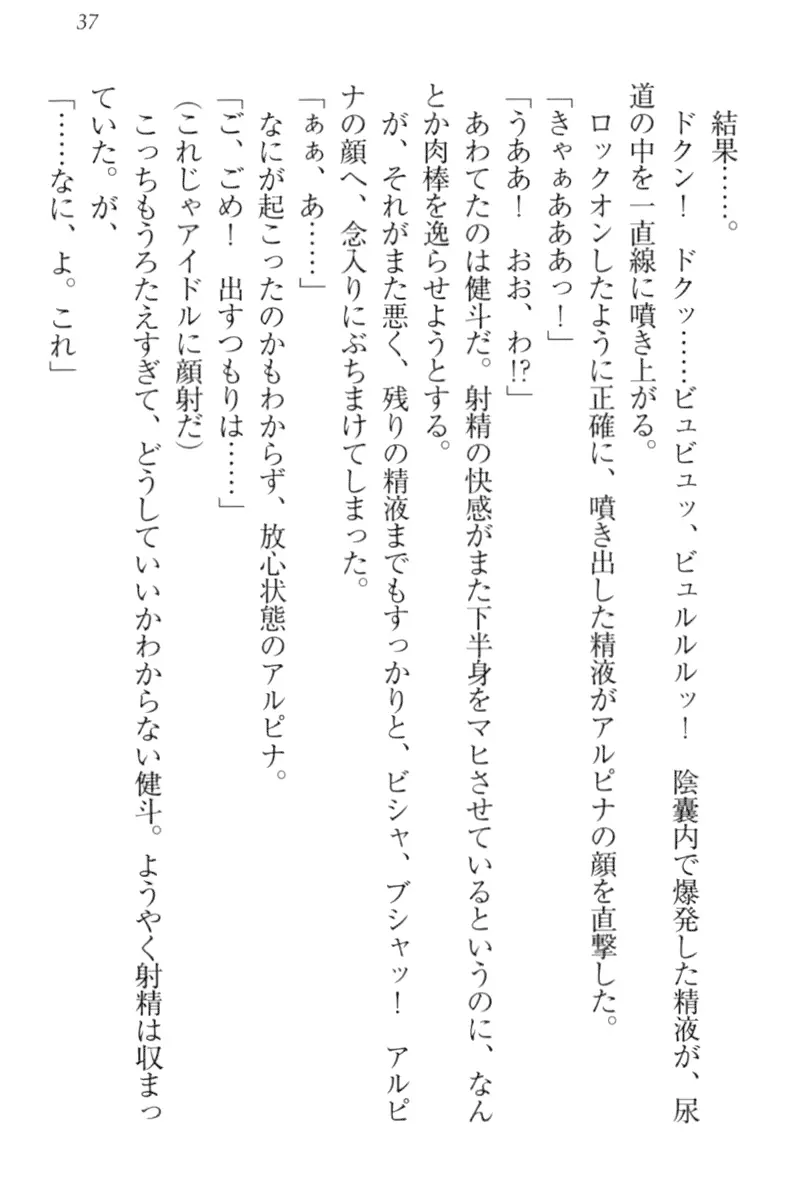 37
結果……。
ドクン！　ドクッ……ビュビュッ、ビュルルルッ！　陰嚢内で爆発した精液が、尿
道の中を一直線に噴き上がる。
ロックオンしたように正確に、噴き出した精液がアルピナの顔を直撃した。
「きゃぁあああっ！」
「うああ！　おお、わ!?」
あわてたのは健斗だ。射精の快感がまた下半身をマヒさせているというのに、なん
とか肉棒を逸らせようとする。
が、それがまた悪く、残りの精液までもすっかりと、ビシャ、ブシャッ！　アルピ
ナの顔へ、念入りにぶちまけてしまった。
「ぁぁ、あ……」
なにが起こったのかもわからず、放心状態のアルピナ。
「ご、ごめ！　出すつもりは……」
（これじゃアイドルに顔射だ）
こっちもうろたえすぎて、どうしていいかわからない健斗。ようやく射精は収まっ
ていた。が、
「……なに、よ。これ」